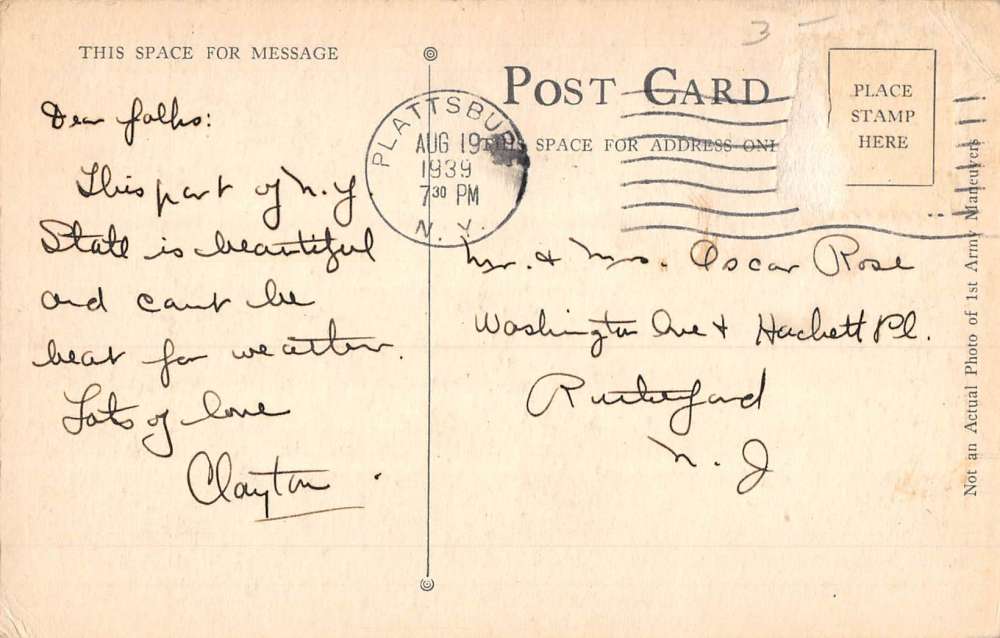 3-
THIS SPACE FOR MESSAGE
POST CARD
PLACE
STAMP
HERE
THIS SPACE FOR ADDRESS ONL
PLATTSBU
AUG 19
1939
7 30 PM
N. Y.
Dear folks:
This part of N. Y
State is beautiful
and cant be
beat for weather.
Lots of love
Clayton.
Mr. & Mrs. Oscar Rose
Washington Ave & Hackett Pl.
Rutherford
N. J
Not an Actual Photo of 1st Army Maneuvers